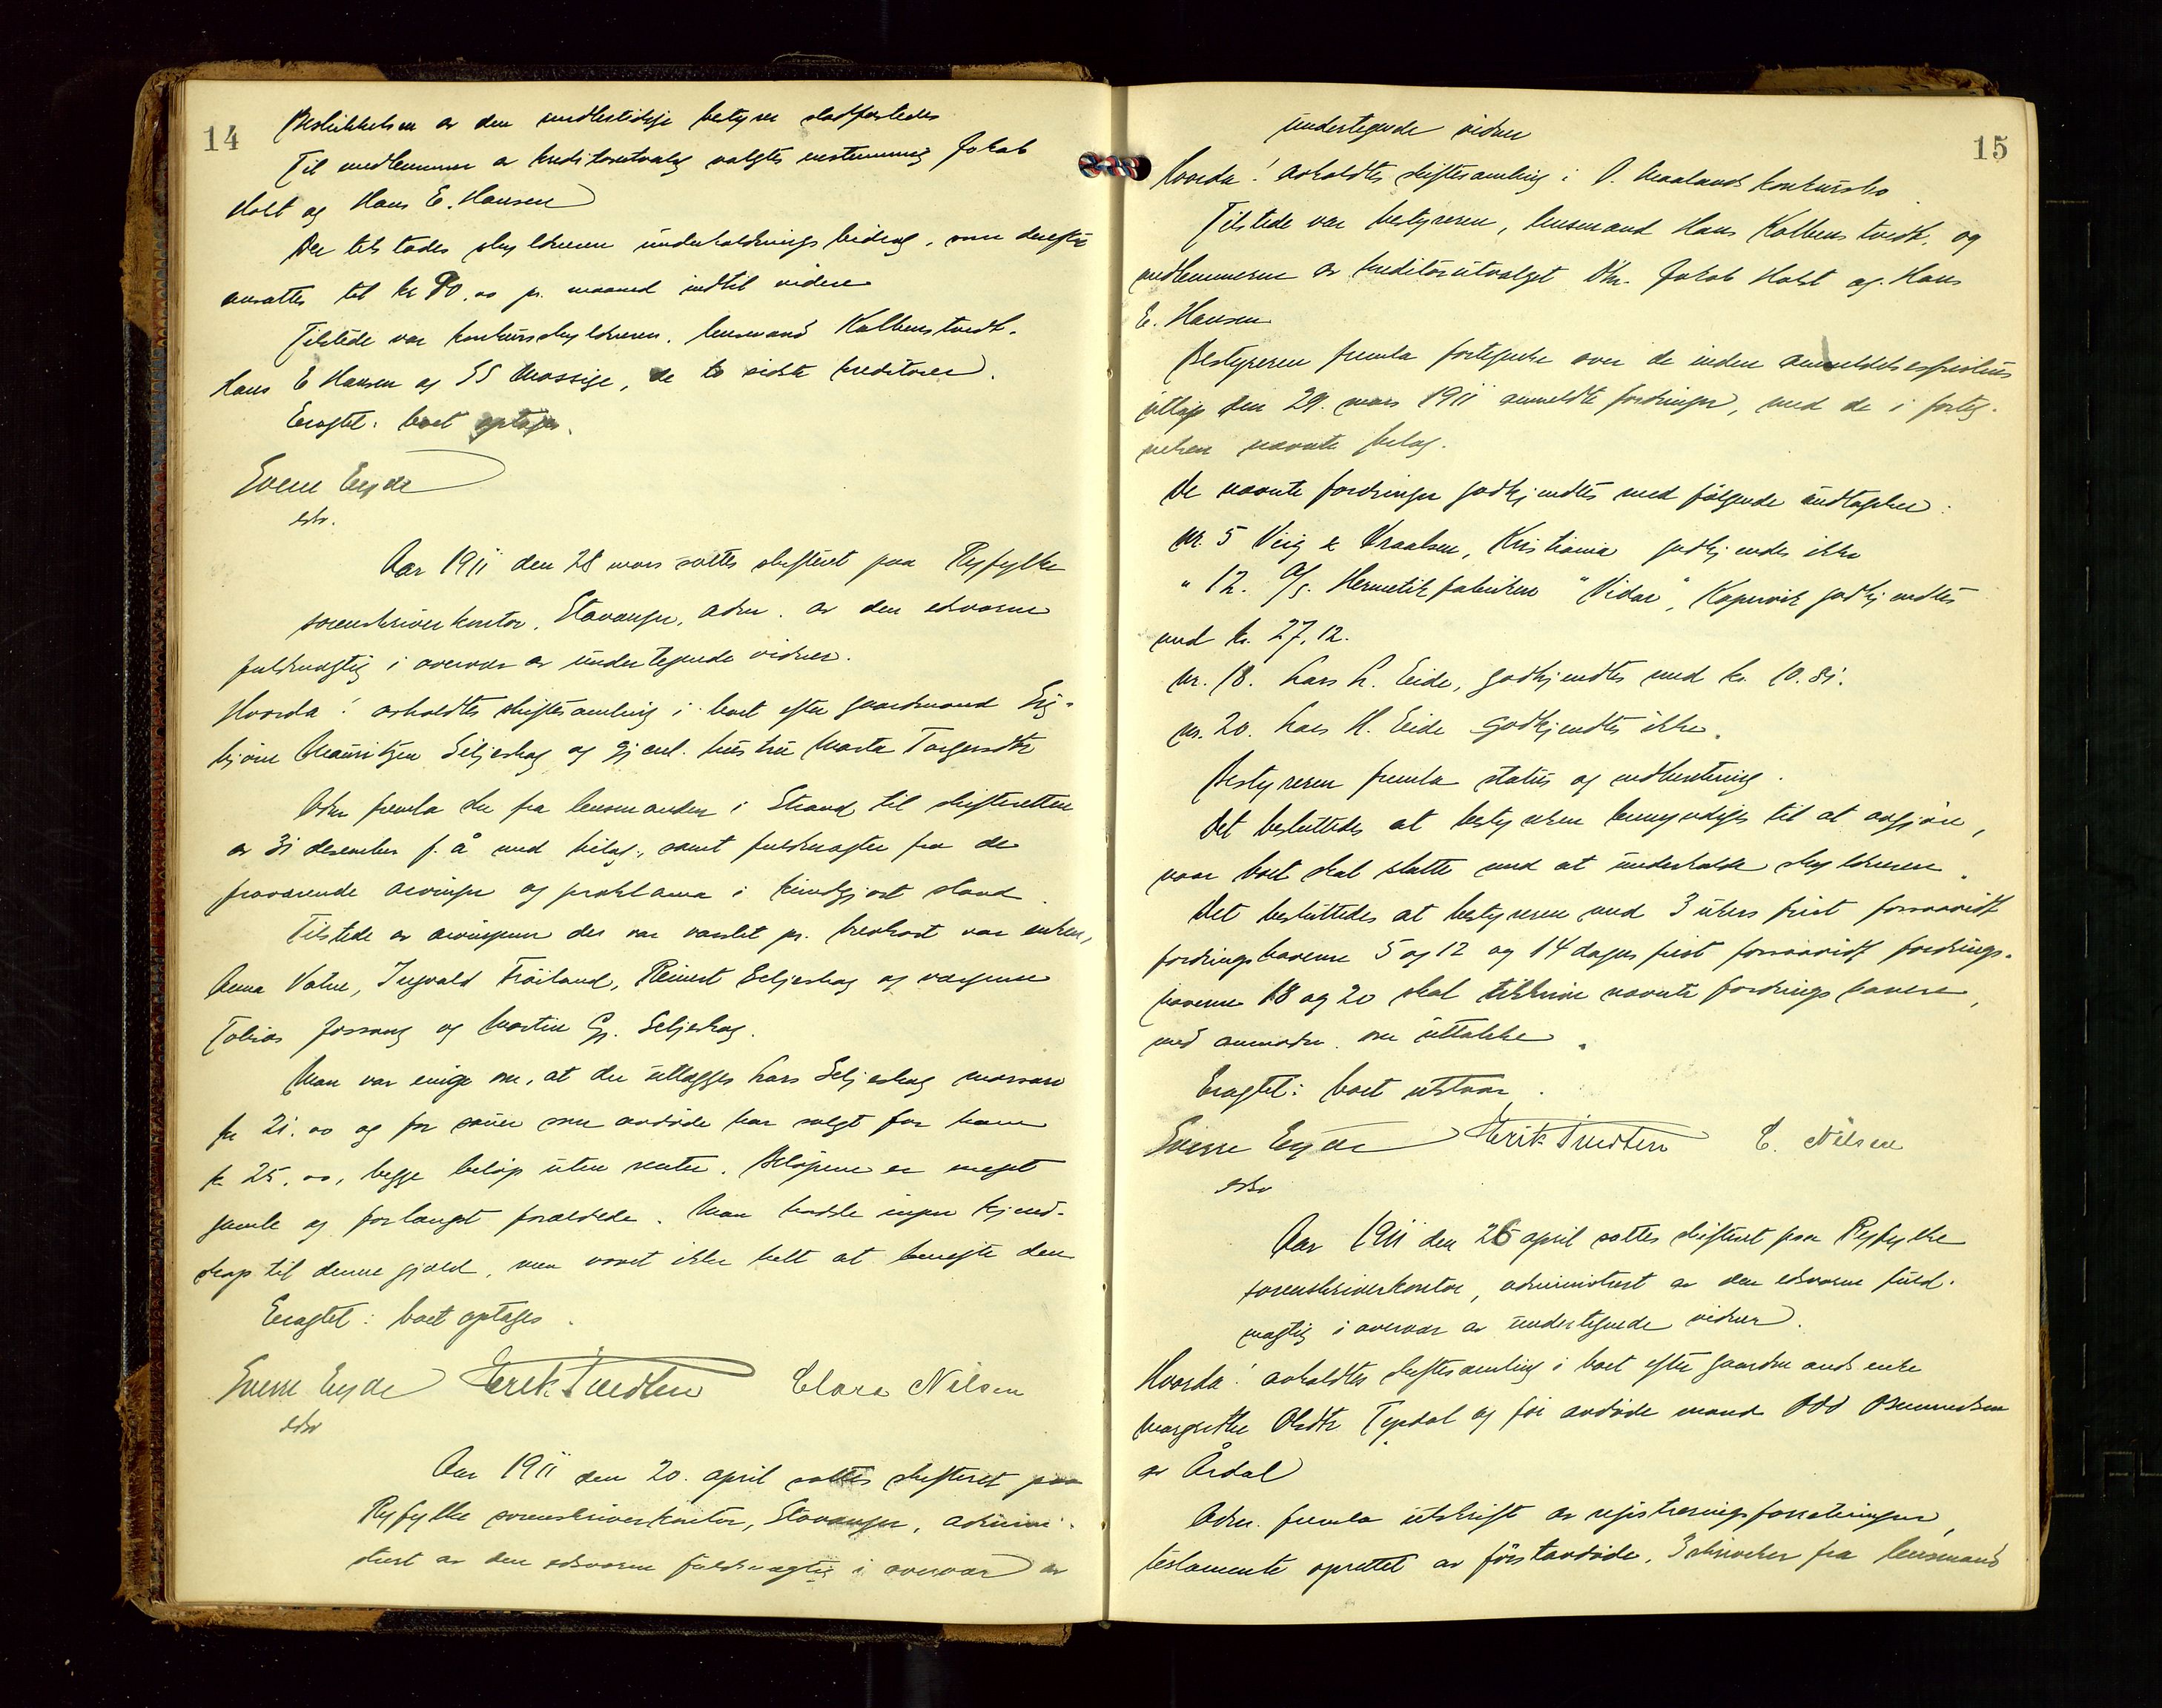 14
Beskikkelsen av den midlertidige bestyrer stadfæstedes
Til medlemmer av kreditorutvalg valgtes enstemmig Jakob
Holst og Hans E. Hansen
Der tilstodes skyldneren underholdningsbidrag, som derefter
ansattes til kr 80.00 pr. maaned indtil videre
Tilstede var konkursskyldneren, lensmand Kolbenstvedt.
Hans E Hansen og SS Mossige, de to sidste kreditorer.
Eragtet: boet optages.
Sverre Eyde
edsv.
Aar 1911 den 28 mars sattes skifteret paa Ryfylke
sorenskriverkontor, Stavanger, adm. av den edsvorne
fuldmægtig i overvær av undertegnede vidner.
Hvorda! avholdtes skiftesamling i boet efter gaardmand Sig-
bjørn Mauritzen Seljeskog og gjenl. hustru Marta Torgersdtr
Adm fremla sku fra lensmanden i Strand til skifteretten
av 31 desember f. å med bilag, samt fuldmagter fra de
fraværende arvinger og proklama i kundgjort stand.
Tilstede av arvingerne der var varslet pr. brevkort var enken,
Anna Vatne, Ingvald Frøiland, Reinert Seljeskog og værgerne
Tobias Jøssang og Martin Gj. Seljeskog.
Man var enige om, at der utlægges Lars Seljeskog
kr 21.00 og for sauer som avdøde har solgt for ham
kr 25.00, begge beløp uten renter. Beløpene er meget
gamle og forlængst forældede. Man hadde ingen kjend-
skap til denne gjæld, men vovet ikke helt at benegte den
Eragtet: boet optages.
Sverre Eyde Erik Tvedten Clara Nilsen
edsv
Aar 1911 den 20. april sattes skifteret paa
Ryfylke sorenskriverkontor, Stavanger, admini-
strert av den edsvorne fuldmægtig i overvær av
15
undertegnede vidner
Hvorda! avholdtes skiftesamling i O. Maalands konkursbo.
Tilstede var bestyreren, lensmand Hans Kolbenstvedt, og
medlemmerne av kreditorutvalget Dhr. Jakob Holst og Hans
E. Hansen
Bestyreren fremla fortegnelse over de inden anmeldelsesfristens
utløp den 29. mars 1911 anmeldte fordringer, med de i forteg-
nelsen nævnte bilag.
De nævnte fordringer godkjendtes med følgende undtagelser:
nr. 5 Veig & Kraalsen, Kristiania godkjendes ikke
" 12. A/S. Hermetikfabriken "Vidar", Kopervik godkjendtes
med kr. 27,12.
nr. 18. Lars L. Eide, godkjendtes med kr. 10.81.
nr. 20. Lars H. Eide godkjendtes ikke.
Bestyreren fremla status og indberetning.
Det besluttedes at bestyreren bemyndiges til at avgjøre,
naar boet skal slutte med at underholde skyldneren.
Det besluttedes at bestyreren med 3 ukers frist forsaavidt
fordringshaverne 5 og 12 og 14 dagers frist forsaavidt fordrings-
haverne 18 og 20 skal tilskrive nævnte fordringshavere,
med anmodn. om uttalelse.
Eragtet: boet utstaar.
Sverre Eyde Erik Tvedten C. Nilsen
edsv
Aar 1911 den 26 april sattes skifteret paa Ryfylke
sorenskriverkontor, administrert av den edsvorne fuld-
mægtig i overvær av undertegnede vidner.
Hvorda! avholdtes skiftesamling i boet efter gaardmandsenke
Margrethe Olsdtr Tysdal og før avdøde mand Odd Osmundsen
av Årdal
Adm. fremla utskrift av registreringsforretningen,
testamente oprettet av førstavdøde, 3 skrivelser fra lensmand